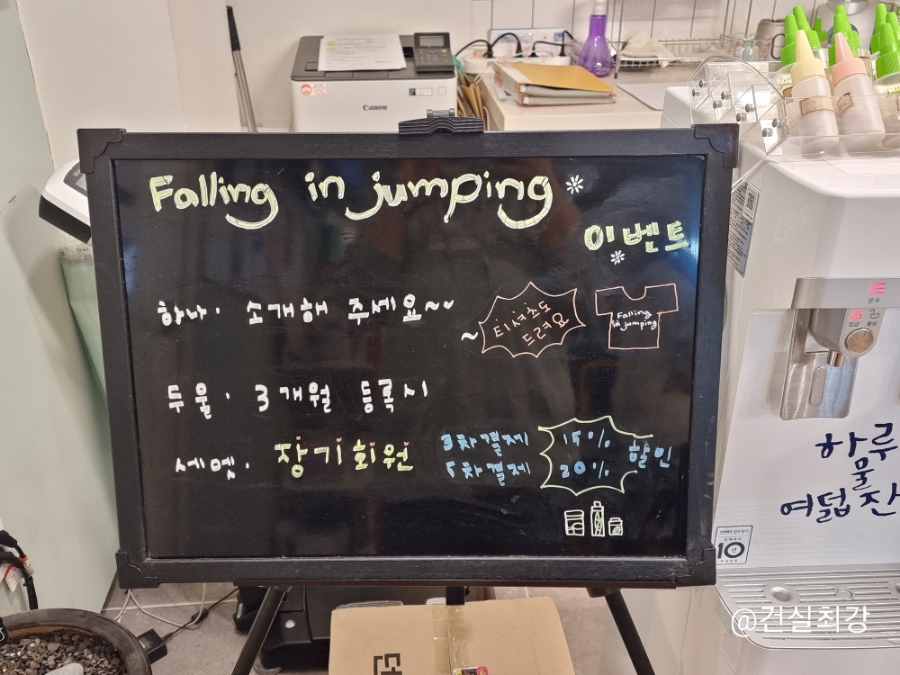 Canon
Falling in jumping
이벤트
하나. 소개해 주세요~
~ 티셔츠도
드려요
Falling
in jumping
두울. 3개월 등록시
세엣. 장기회원
3차결제 15%
5차결제 20% 할인
하루
물
여덟잔
10
@건실최강